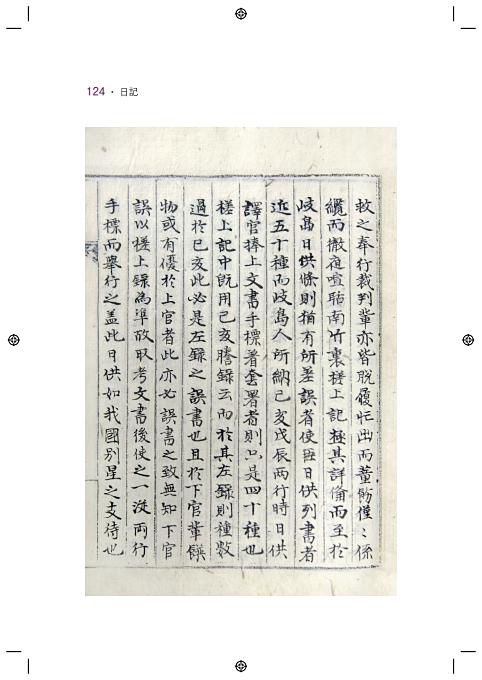 124 · 日記
救之奉行裁判輩亦皆脫履忙出而董飭僅〻係
纜而撤夜喧聒南竹裏槎上記極其詳備而至於
岐島日供條則猶有所差誤者使臣日供列書者
近五十種而岐島人所納己亥戊辰兩行時日供
譯官捧上文書手標着套署者則只是四十種也
槎上記中旣用己亥謄錄云而於其左錄則種數
過於己亥此必是左錄之誤書也且於下官輩饌
物或有優於上官者此亦必誤書之致無知下官
誤以槎上錄為準故取考文書後使之一從兩行
手標而擧行之盖此日供如我國別星之支待也